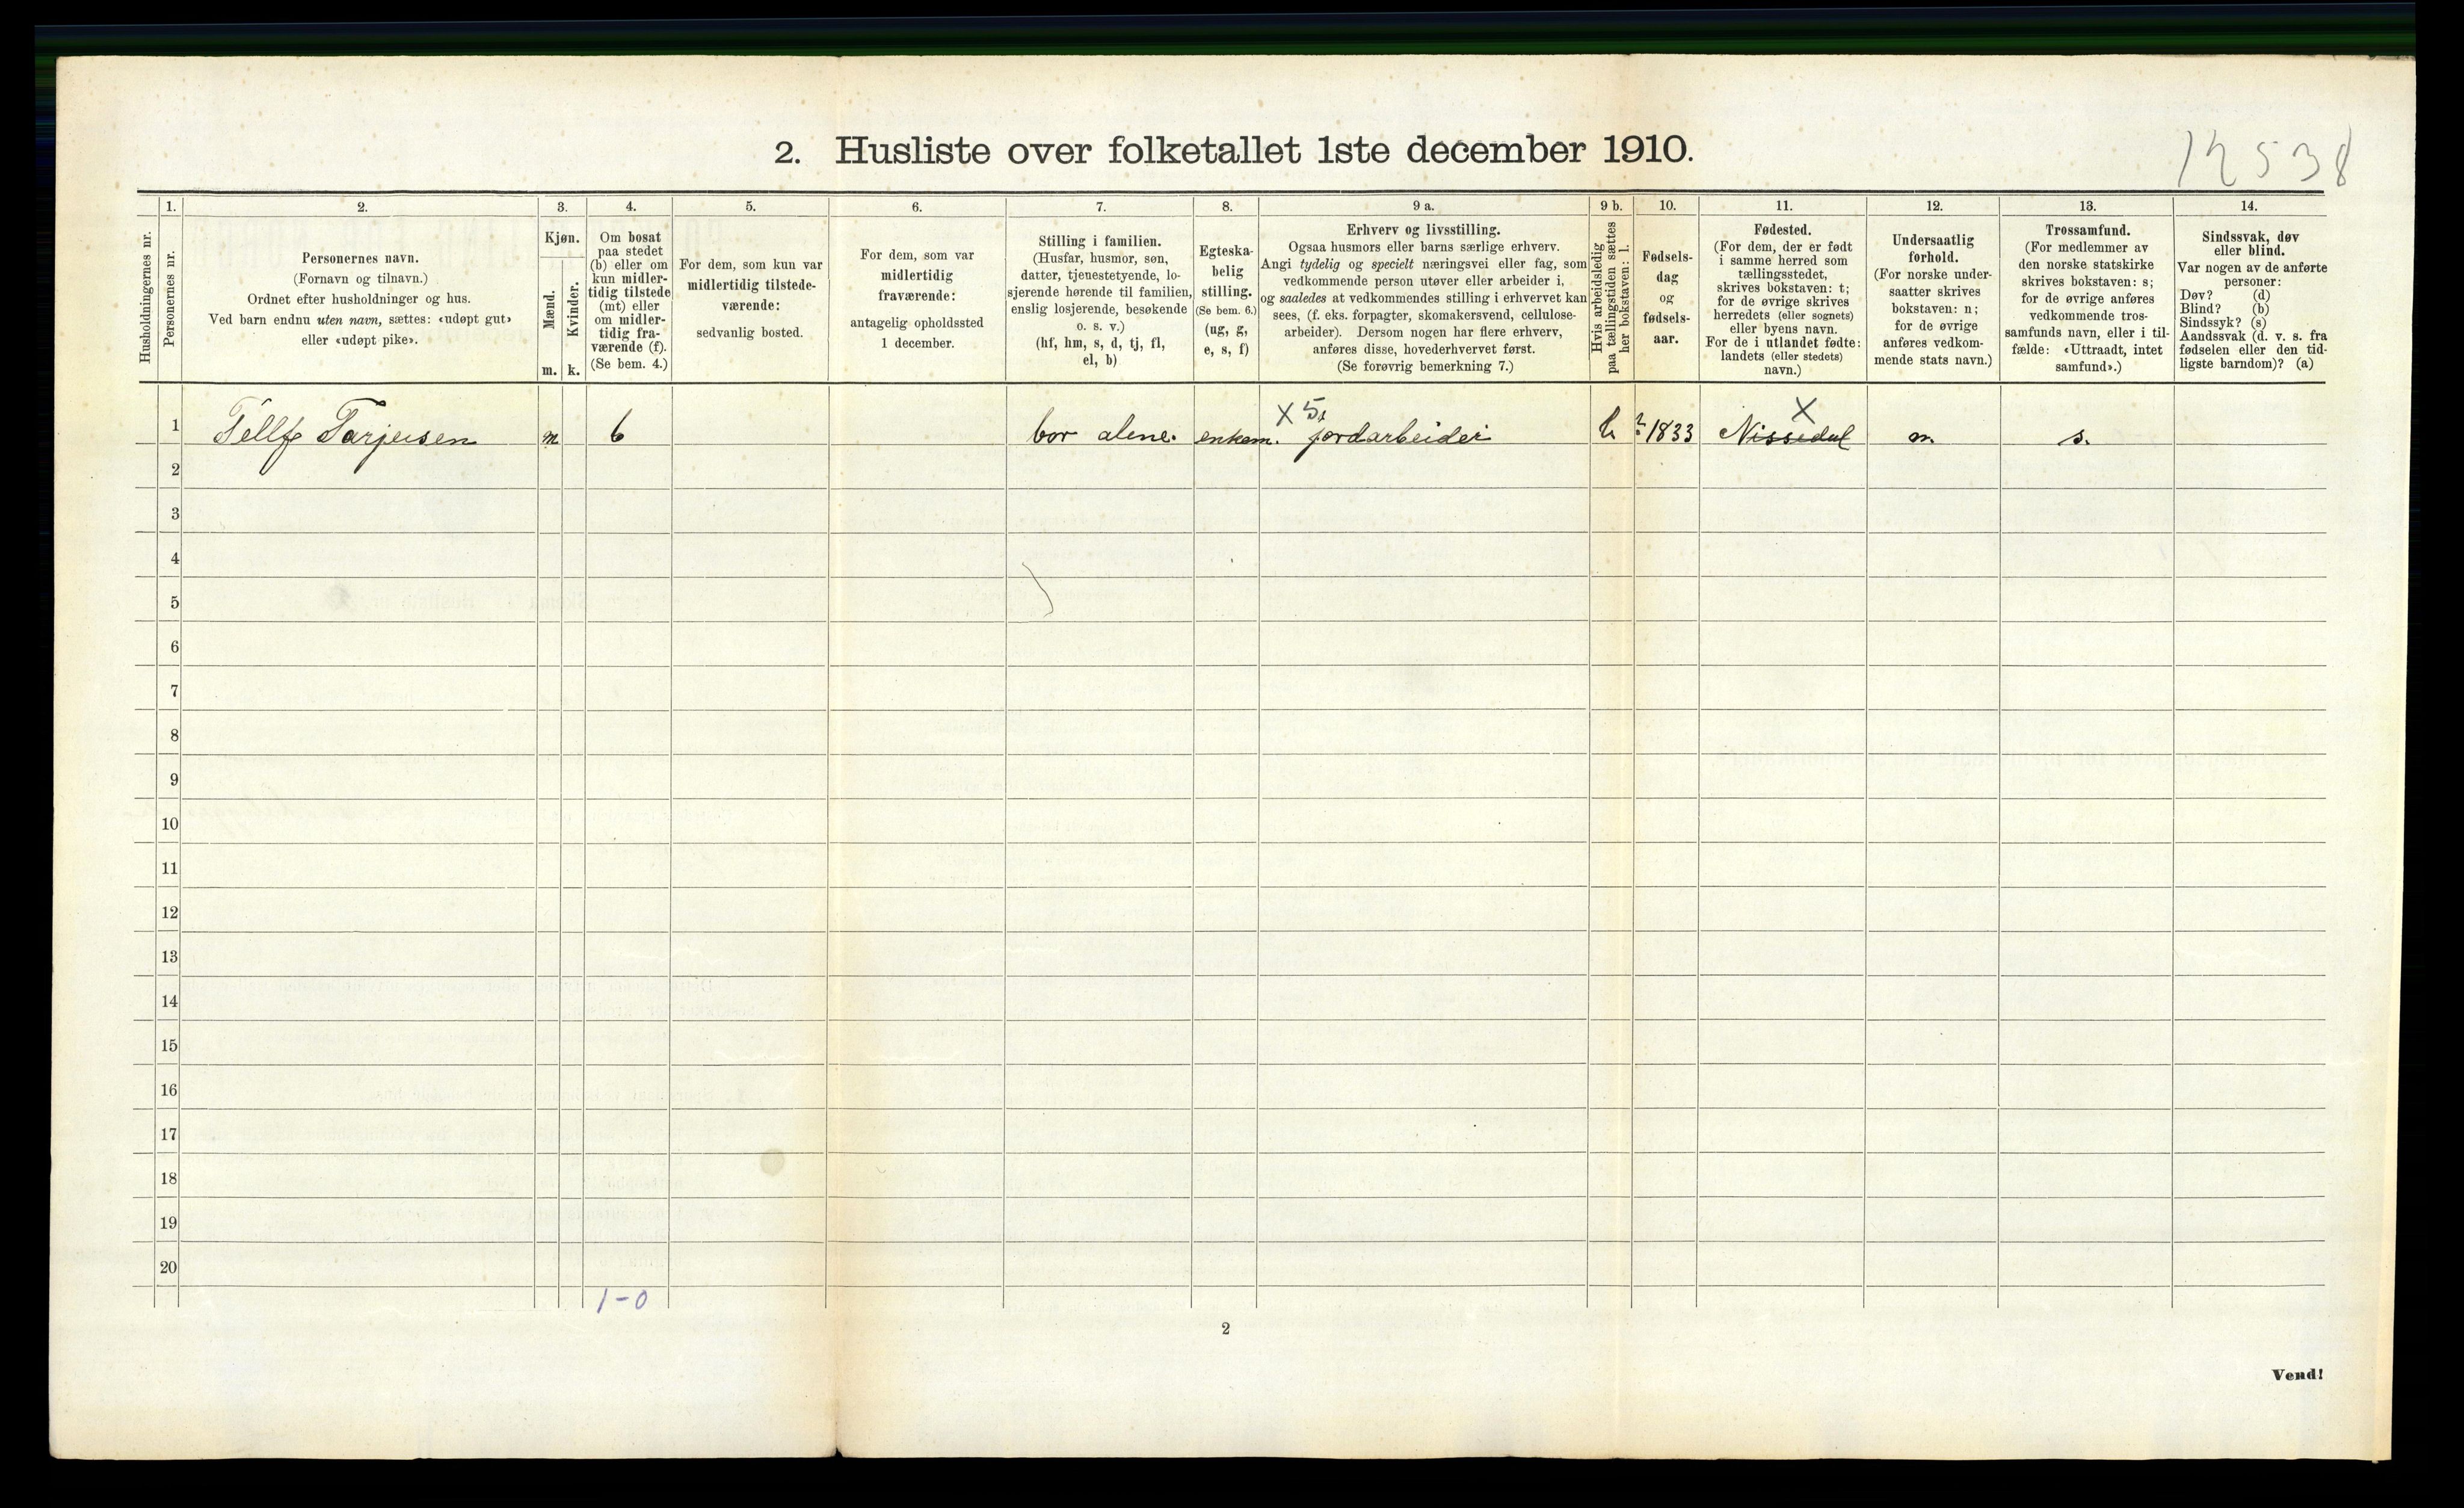 2. Husliste over folketallet 1ste december 1910.
12538
Husholdningernes nr.
1.
Personernes nr.
2.
Personernes navn.
(Fornavn og tilnavn.)
Ordnet efter husholdninger og hus.
Ved barn endnu uten navn, sættes: «udøpt gut»
eller «udøpt pike».
3.
Kjøn.
Mænd.
Kvinder.
m. k.
4.
Om bosat
paa stedet
(b) eller om
kun midler-
tidig tilstede
(mt) eller
om midler-
tidig fra-
værende (f).
(Se bem. 4.)
5.
For dem, som kun var
midlertidig tilstede-
værende:
sedvanlig bosted.
6.
For dem, som var
midlertidig
fraværende:
antagelig opholdssted
1 december.
7.
Stilling i familien.
(Husfar, husmor, søn,
datter, tjenestetyende, lo-
sjerende hørende til familien,
enslig losjerende, besøkende
o. s. v.)
(hf, hm, s, d, tj, fl,
el, b)
8.
Egteska-
belig
stilling.
(Se bem. 6.)
(ug, g,
e, s, f)
9 a.
Erhverv og livsstilling.
Ogsaa husmors eller barns særlige erhverv.
Angi tydelig og specielt næringsvei eller fag, som
vedkommende person utøver eller arbeider i,
og saaledes at vedkommendes stilling i erhvervet kan
sees, (f. eks. forpagter, skomakersvend, cellulose-
arbeider). Dersom nogen har flere erhverv,
anføres disse, hovederhvervet først.
(Se forøvrig bemerkning 7.)
9 b.
Hvis arbeidsledig
paa tællingstiden sættes
her bokstaven: l.
10.
Fødsels-
dag
og
fødsels-
aar.
11.
Fødested.
(For dem, der er født
i samme herred som
tællingsstedet,
skrives bokstaven: t;
for de øvrige skrives
herredets (eller sognets)
eller byens navn.
For de i utlandet fødte:
landets (eller stedets)
navn.)
12.
Undersaatlig
forhold.
(For norske under-
saatter skrives
bokstaven: n;
for de øvrige
anføres vedkom-
mende stats navn.)
13.
Trossamfund.
(For medlemmer av
den norske statskirke
skrives bokstaven: s;
for de øvrige anføres
vedkommende tros-
samfunds navn, eller i til-
fælde: «Uttraadt, intet
samfund».)
14.
Sindssvak, døv
eller blind.
Var nogen av de anførte
personer:
Døv? (d)
Blind? (b)
Sindssyk? (s)
Aandssvak (d. v. s. fra
fødselen eller den tid-
ligste barndom)? (a)
X 5, X
1 Tellf Tarjeisen m b bor alene. enkem. jordarbeider l. ? 1833 Nissedal n. s.
2
3
4
5
6
7
8
9
10
11
12
13
14
15
16
17
18
19
20
1-0
2
Vend!